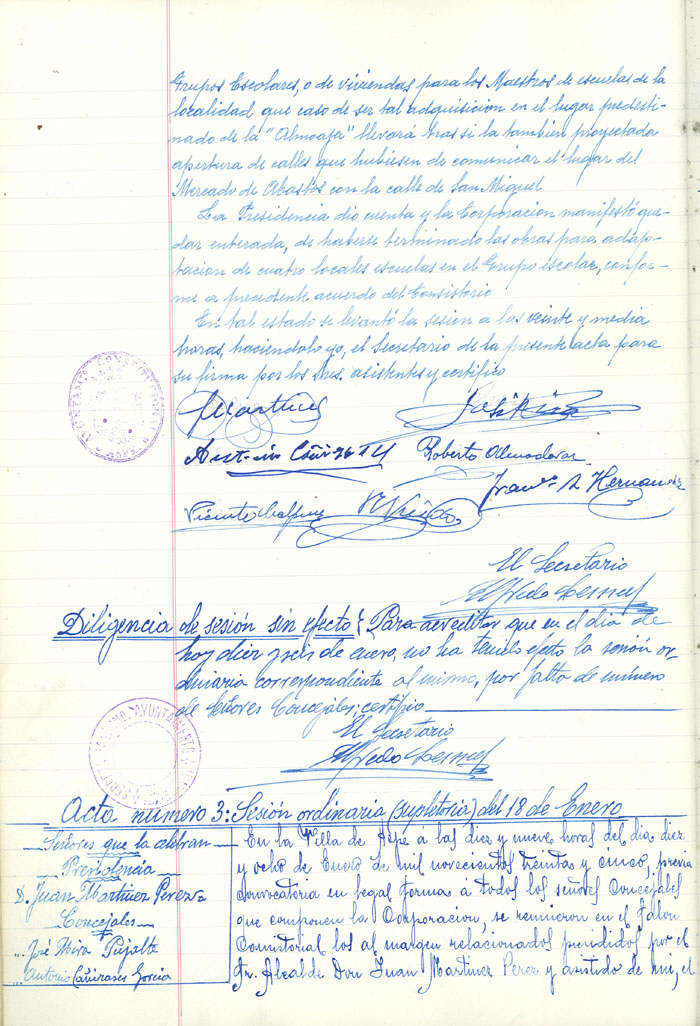 Grupos Escolares, o de viviendas para los Maestros de escuelas de la
localidad que caso de ser tal adquisicion en el lugar predesti-
nado de la "Almoaja" llevará tras si la tambien proyectada
apertura de calles que hubiesen de comunicar el lugar del
Mercado de Abastos con la calle de San Miguel
La Presidencia dio cuenta y la Corporacion manifestó que-
dar enterada, de haberse terminado las obras para adap-
tacion de cuatro locales escuelas en el Grupo escolar, confor-
me a precedente acuerdo del Consistorio
En tal estado se levantó la sesion a las veinte y media
horas, haciendolo yo, el Secretario de la presente acta para
su firma por los Sres. asistentes y certifico
JMartinez
Roberto Almodovar
Hernandez
Vicente
El Secretario
Diligencia de sesión sin efecto { Para acreditar que en el dia de
hoy diez y seis de enero, no ha tenido efecto la sesión or-
dinaria correspondiente al mismo, por falta de número
de Señores Concejales; certifico
AYUNTAMIENTO
El Secretario
Acta número 3: Sesión ordinaria (supletoria) del 18 de Enero
Señores que la celebran
Presidencia
D. Juan Martinez Perez
Concejales
" José Mira Pujalte
" Antonio Cañizares Garcia
En la Villa de Aspe á las diez y nueve horas del dia diez
y ocho de Enero de mil novecientos treinta y cinco, previa
convocatoria en legal forma á todos los señores Concejales
que componen la Corporacion, se reunieron en el Salon
Consistorial los al margen relacionados presididos por el
Sr. Alcalde Don Juan Martinez Perez y asistido de mi, el